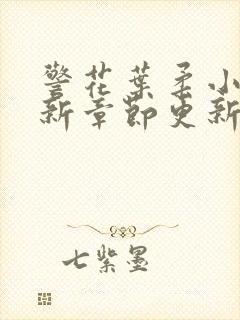 警花葉柔小
新章節更新
七紫墨